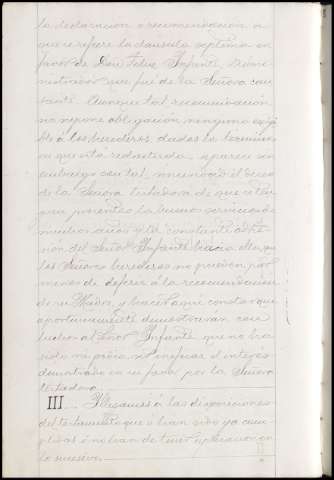 la declaración o recomendación a
que se refiere la clausula septima en
favor de Don Felix Infante, admi-
nistrador que fué de la Señora cau-
sante. Aunque tal recomendación
no impone obligación ninguna exigi-
ble á los herederos dados los terminos
en que está redactada, aparece sin
embargo con tal, un deseo
de la Señora testadora de que se ten-
gan presentes los buenos servicios de
muchos años y la constante adhe-
sión del Señor Infante hacia ella, que
los Señores herederos no pueden por
menos de deferir á la recomendación
de su Madre, y hacen aquí constar que
oportunamente demostrarán con
hechos al Señor Infante, que no ha
sido ni ineficaz el interes
demostrado en su favor por la Señora
testadora.
III. Respecto á las disposiciones
del testamento que o han sido ya cum-
plidas ó no han de tener aplicacion en
lo sucesivo